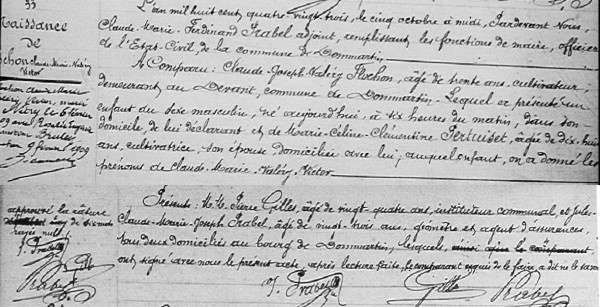 53
Naissance
de
Claude-Marie-Valéry
Victor
L'an mil huit cent quatre-vingt-trois, le cinq octobre à midi, Pardevant Nous,
Claude-Marie-Ferdinand Prabel adjoint, remplissant les fonctions de maire, officier
de l'Etat-Civil de la commune de Dommartin
A Comparu: Claude-Joseph-Valéry Fluchon, âgé de trente ans, cultivateur,
demeurant au Devant, commune de Dommartin. Lequel a présenté un
enfant du sexe masculin, né aujourd'hui, à six heures du matin, dans son
domicile de lui déclarant et de Marie-Céline-Clémentine Pertuiset, âgée de dix-huit
ans, cultivatrice, son épouse domiciliée avec lui; auquel enfant, on a donné les
prénoms de Claude-Marie-Valéry-Victor
Présents M.M. Pierre Gilles, âgé de vingt-quatre ans, instituteur communal, et Jules-
Claude-Marie-Joseph Prabel, âgé de vingt-trois ans, géomètre et agent d'assurances,
tous deux domiciliés au bourg de Dommartin, lesquels,
ont signé avec nous le présent acte, après lecture faite, le comparant requis de le faire, a dit ne le savoir
approuvé la rature
de six mots
rayés nuls
J. Prabel
Gilles
Prabel
J. Prabel
Gilles
Prabel